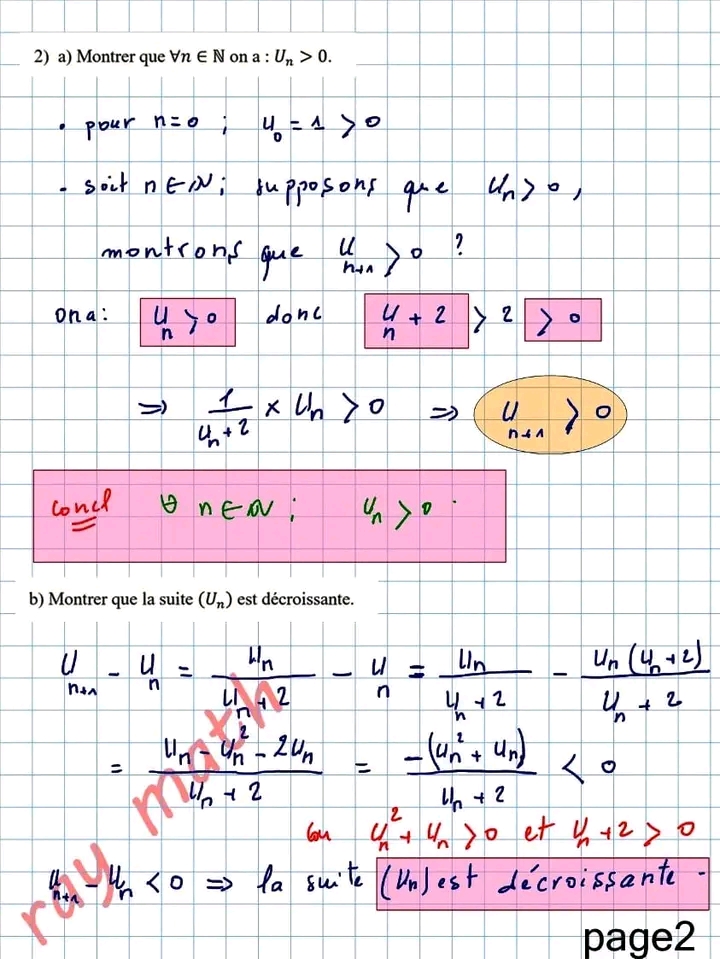 2) a) Montrer que ∀n ∈ ℕ on a : Uₙ > 0.
• pour n=0 ; U₀ = 1 > 0
- soit n∈ℕ ; supposons que Uₙ > 0,
montrons que Uₙ₊₁ > 0 ?
on a : Uₙ > 0 donc Uₙ + 2 > 2 > 0
⇒ 1/(Uₙ+2) × Uₙ > 0 ⇒ Uₙ₊₁ > 0
concl ∀ n∈ℕ ; Uₙ > 0 .
b) Montrer que la suite (Uₙ) est décroissante.
Uₙ₊₁ - Uₙ = Uₙ/(Uₙ+2) - Uₙ = Uₙ/(Uₙ+2) - Uₙ(Uₙ+2)/(Uₙ+2)
= (Uₙ - Uₙ² - 2Uₙ)/(Uₙ+2) = -(Uₙ² + Uₙ)/(Uₙ+2) < 0
Uₙ² + Uₙ > 0 et Uₙ + 2 > 0
Uₙ₊₁ - Uₙ < 0 ⇒ la suite (Uₙ) est décroissante -
ray math
page2